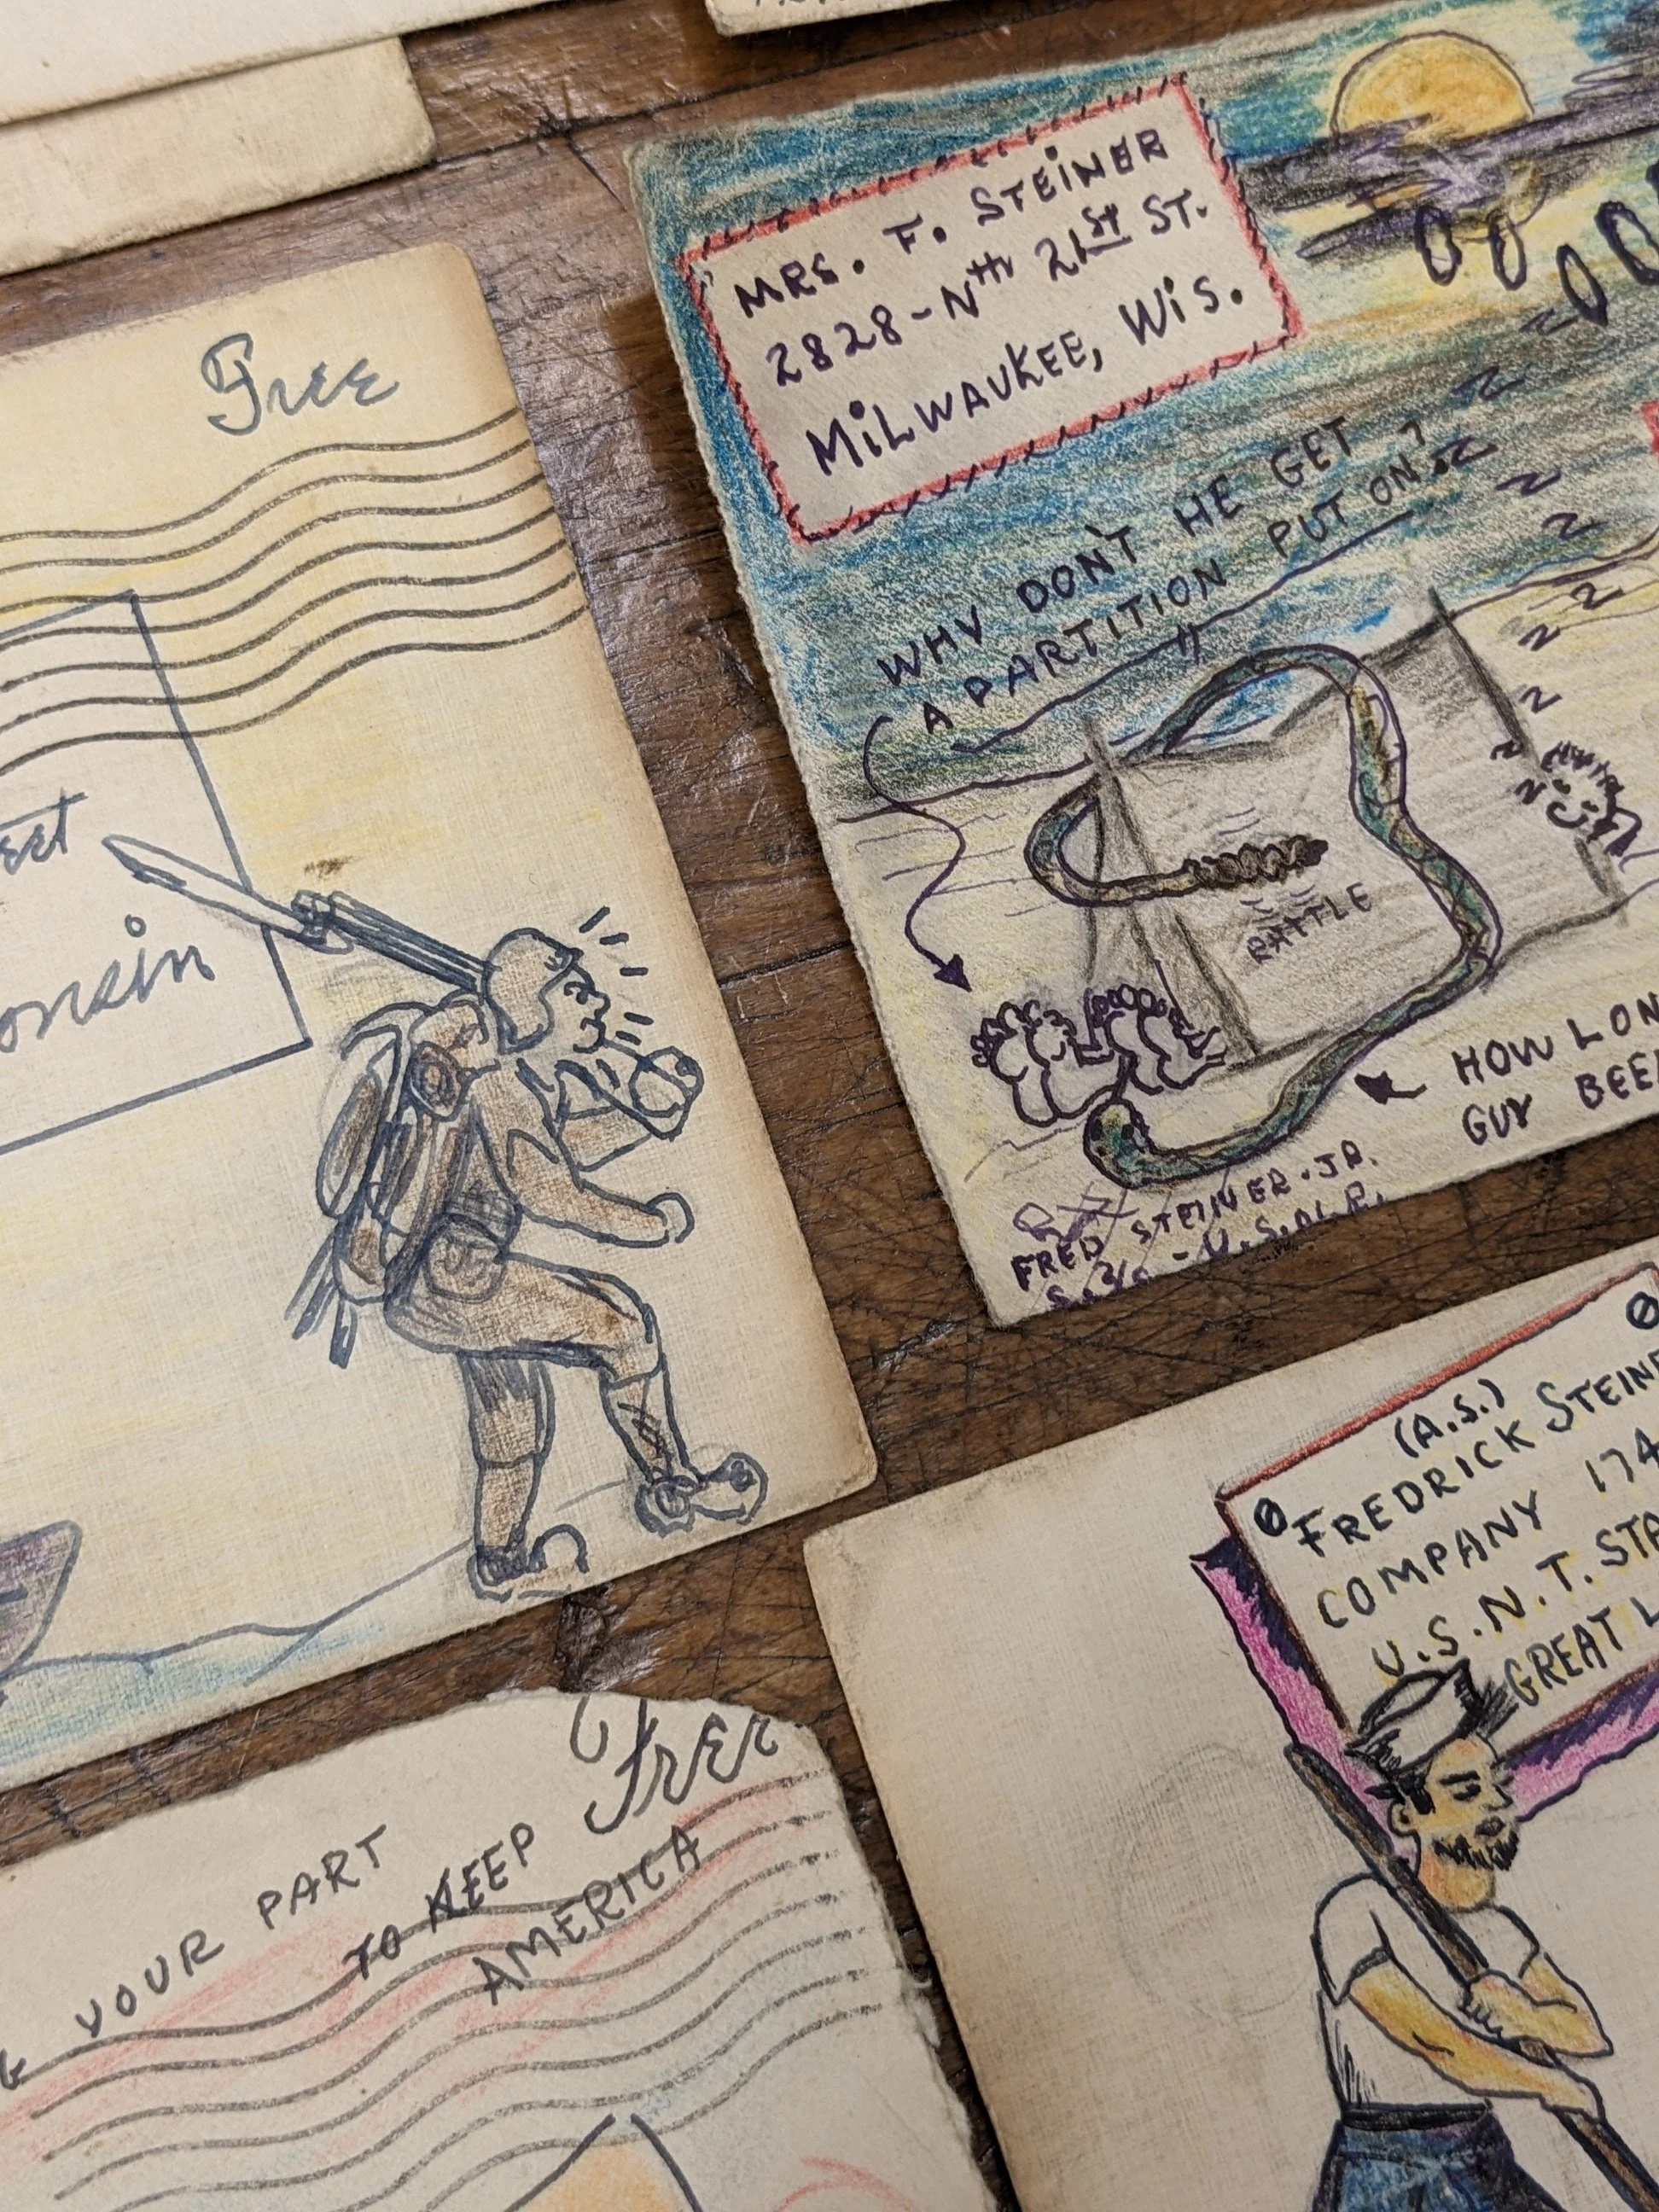 Free
onsin
MRS. F. STEINER
2828-Nth 21st ST.
MILWAUKEE, WIS.
WHY DON'T HE GET
A PARTITION PUT ON?
RATTLE
HOW LON
GUY BEE
FRED STEINER. JR.
(A.S.)
FREDRICK STEINE
COMPANY 174
U.S.N.T. STA
GREAT L
Free
YOUR PART
TO KEEP
AMERICA